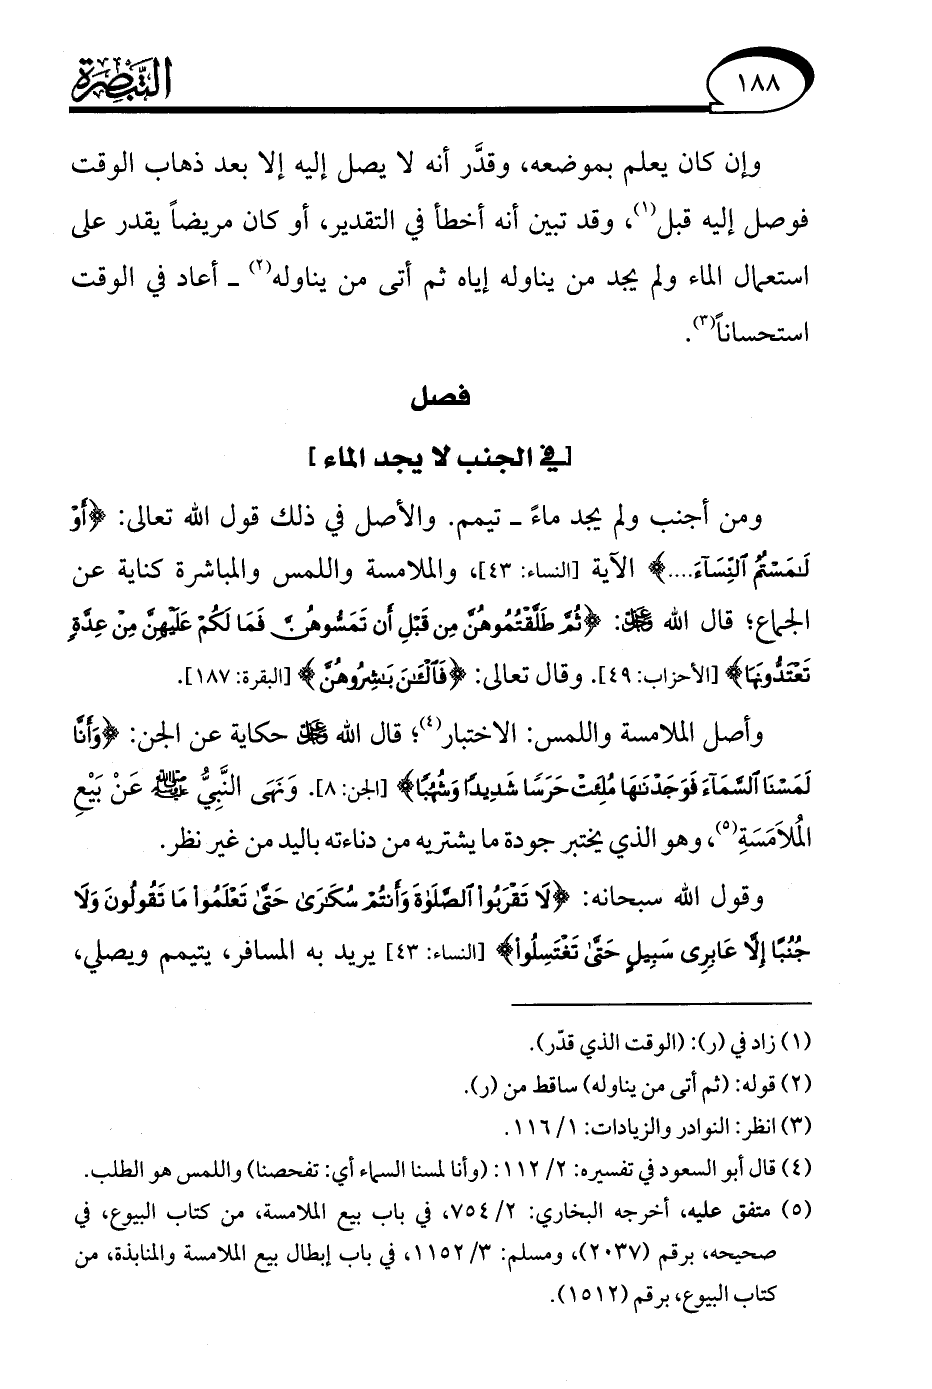 ١٨٨
التبصرة
وإن كان يعلم بموضعه، وقدَّر أنه لا يصل إليه إلا بعد ذهاب الوقت
فوصل إليه قبل(١)، وقد تبين أنه أخطأ في التقدير، أو كان مريضاً يقدر على
استعمال الماء ولم يجد من يناوله إياه ثم أتى من يناوله(٢) ـ أعاد في الوقت
استحساناً(٣).
فصل
[في الجنب لا يجد الماء]
ومن أجنب ولم يجد ماءً ـ تيمم. والأصل في ذلك قول الله تعالى: ﴿أَوْ
لَـٰمَسْتُمُ ٱلنِّسَآءَ....﴾ الآية [النساء: ٤٣]، والملامسة واللمس والمباشرة كناية عن
الجماع؛ قال الله ﷻ: ﴿ثُمَّ طَلَّقْتُمُوهُنَّ مِن قَبْلِ أَن تَمَسُّوهُنَّ فَمَا لَكُمْ عَلَيْهِنَّ مِنْ عِدَّةٍ
تَعْتَدُّونَهَا﴾ [الأحزاب: ٤٩]. وقال تعالى: ﴿فَٱلْـَٔـٰنَ بَـٰشِرُوهُنَّ﴾ [البقرة: ١٨٧].
وأصل الملامسة واللمس: الاختبار(٤)؛ قال الله ﷻ حكاية عن الجن: ﴿وَأَنَّا
لَمَسْنَا ٱلسَّمَآءَ فَوَجَدْنَـٰهَا مُلِئَتْ حَرَسًا شَدِيدًا وَشُهُبًا﴾ [الجن: ٨]. وَنَهَى النَّبِيُّ ﷺ عَنْ بَيْعِ
الْمُلاَمَسَةِ(٥)، وهو الذي يختبر جودة ما يشتريه من دناءته باليد من غير نظر.
وقول الله سبحانه: ﴿لَا تَقْرَبُوا۟ ٱلصَّلَوٰةَ وَأَنتُمْ سُكَـٰرَىٰ حَتَّىٰ تَعْلَمُوا۟ مَا تَقُولُونَ وَلَا
جُنُبًا إِلَّا عَابِرِى سَبِيلٍ حَتَّىٰ تَغْتَسِلُوا۟﴾ [النساء: ٤٣] يريد به المسافر، يتيمم ويصلي،
(١) زاد في (ر): (الوقت الذي قدّر).
(٢) قوله: (ثم أتى من يناوله) ساقط من (ر).
(٣) انظر: النوادر والزيادات: ١/ ١١٦.
(٤) قال أبو السعود في تفسيره: ٢/ ١١٢: (وأنا لمسنا السماء أي: تفحصنا) واللمس هو الطلب.
(٥) متفق عليه، أخرجه البخاري: ٢/ ٧٥٤، في باب بيع الملامسة، من كتاب البيوع، في
صحيحه، برقم (٢٠٣٧)، ومسلم: ٣/ ١١٥٢، في باب إبطال بيع الملامسة والمنابذة، من
كتاب البيوع، برقم (١٥١٢).